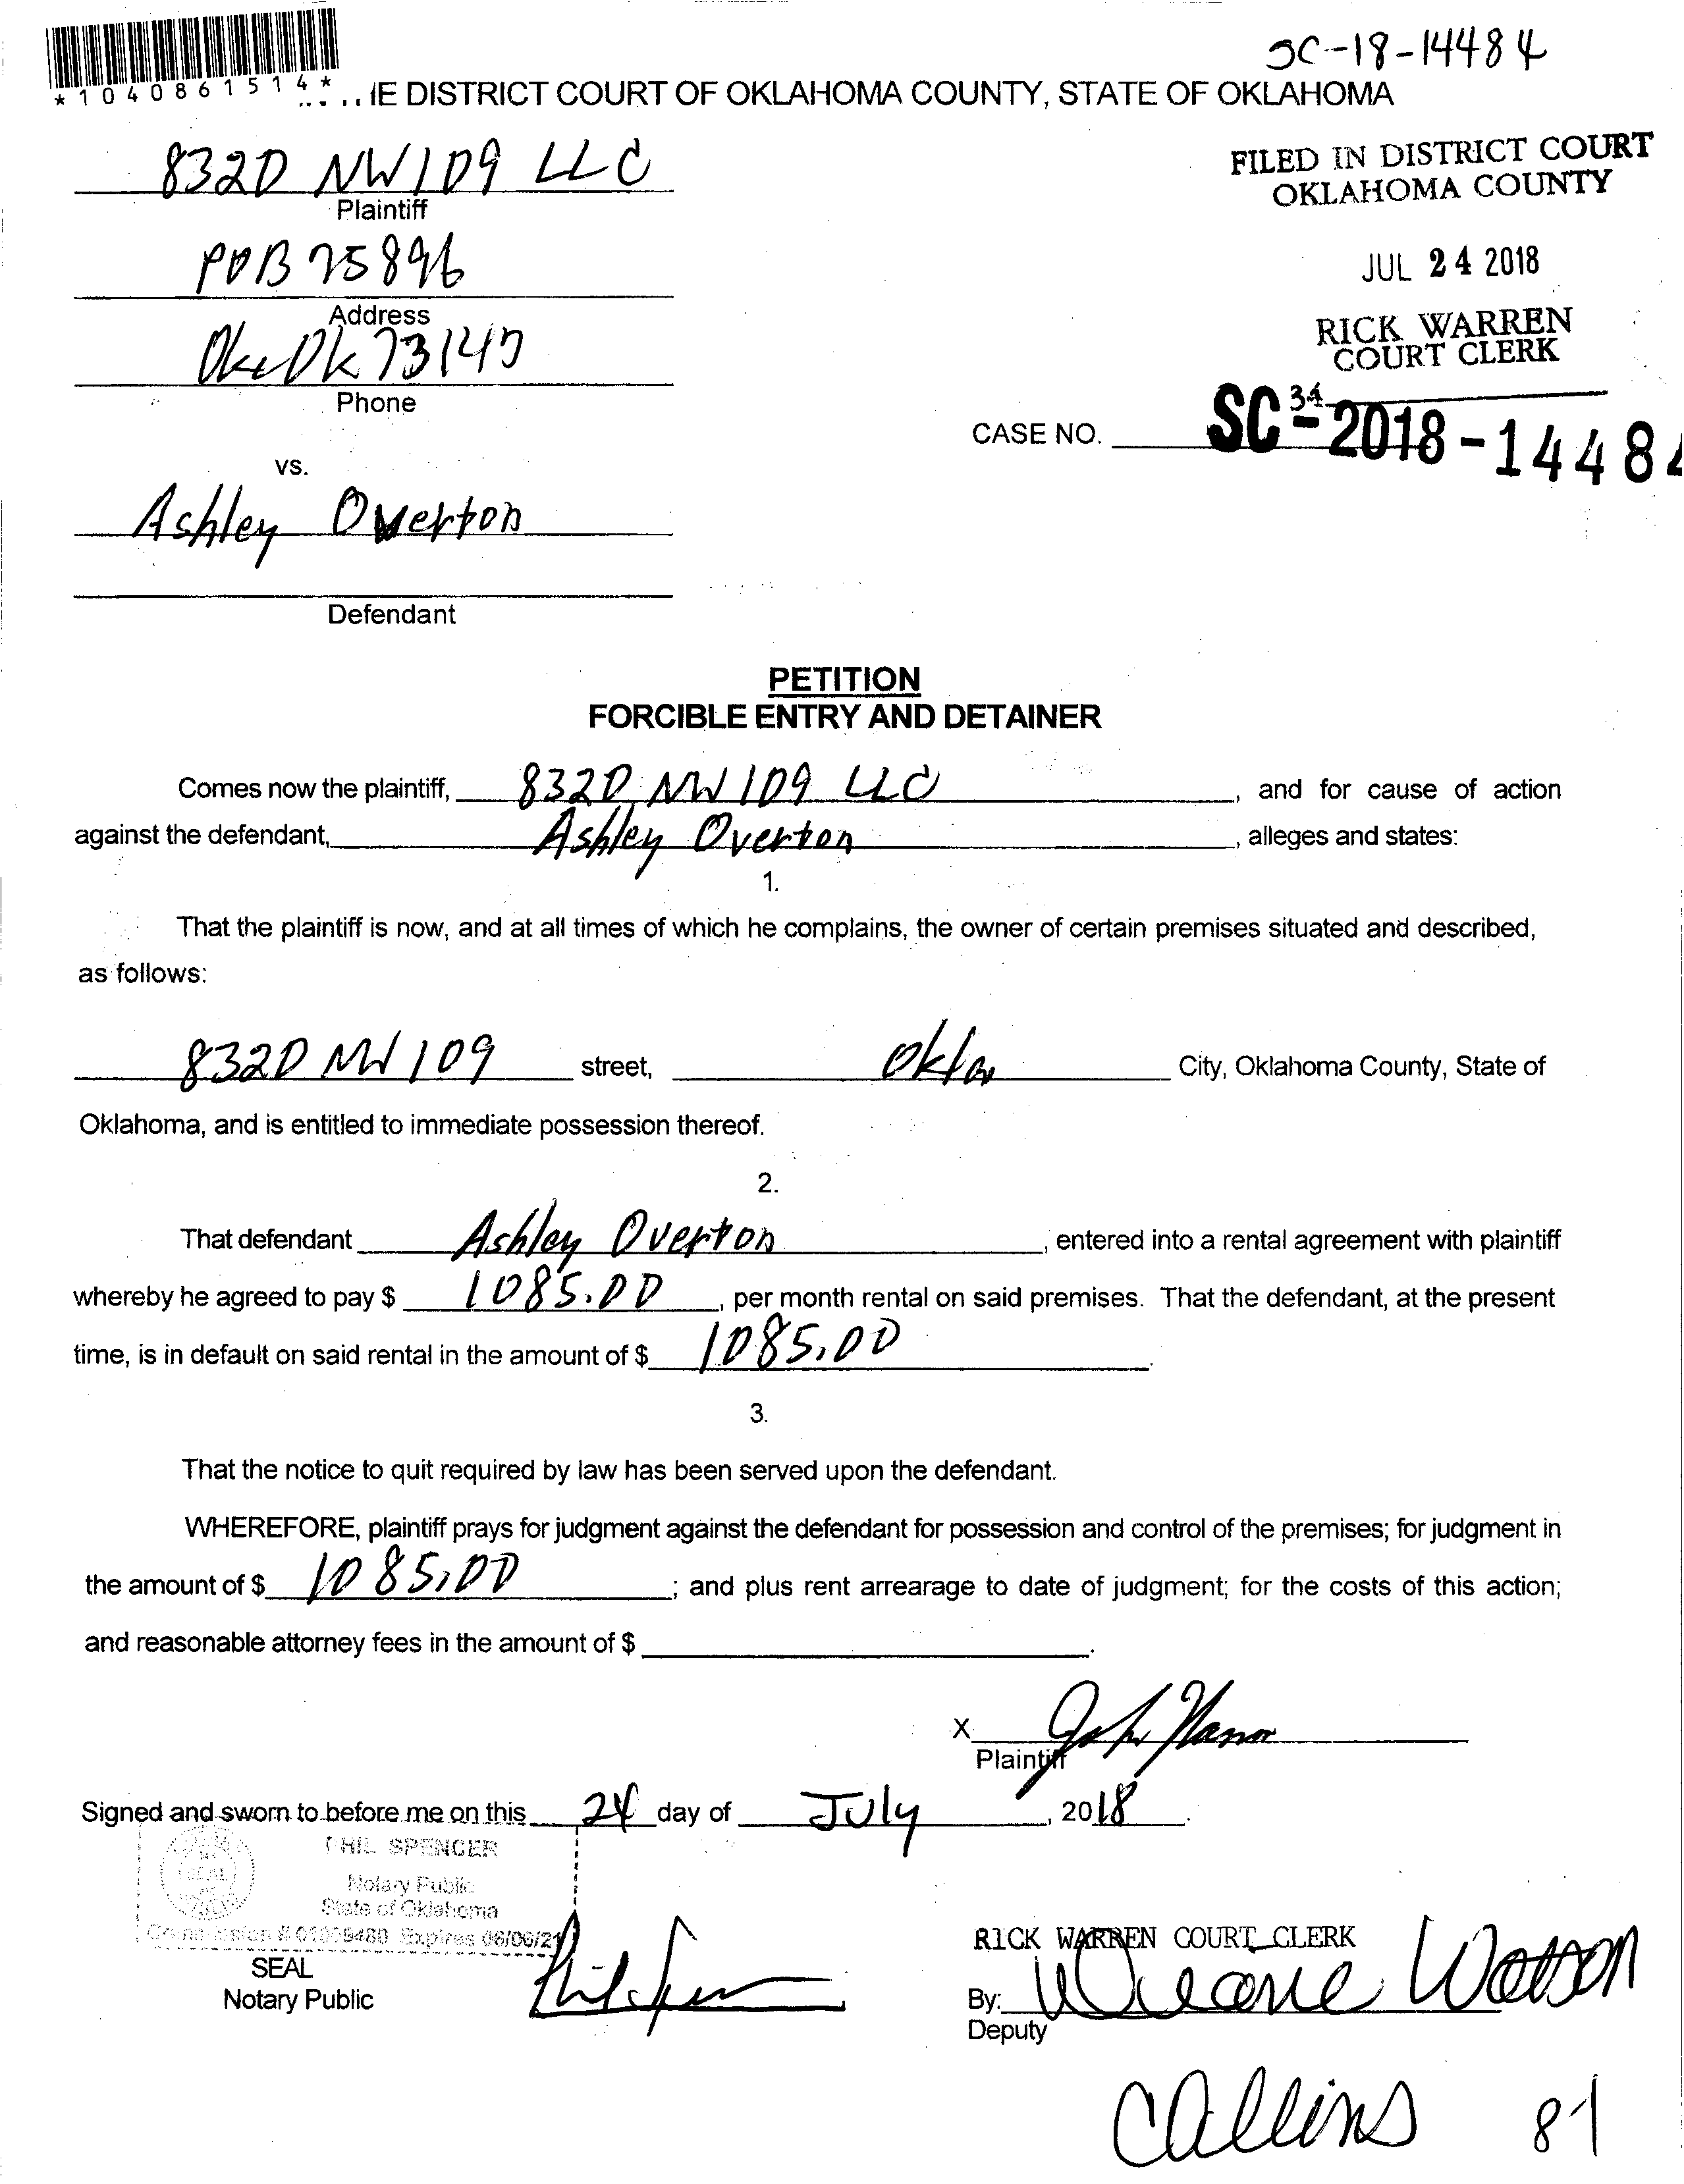 SC-18-14484
*1040861514*
IE DISTRICT COURT OF OKLAHOMA COUNTY, STATE OF OKLAHOMA
8320 NW 109 LLC
Plaintiff
FILED IN DISTRICT COURT
OKLAHOMA COUNTY
POB 75896
Address
JUL 24 2018
Ok 73147
Phone
RICK WARREN
COURT CLERK
34
CASE NO. SC-2018-1448
vs.
Ashley Overton
Defendant
PETITION
FORCIBLE ENTRY AND DETAINER
Comes now the plaintiff, 8320 NW 109 LLC, and for cause of action
against the defendant, Ashley Overton, alleges and states:
1.
That the plaintiff is now, and at all times of which he complains, the owner of certain premises situated and described,
as follows:
8320 NW 109 street, Okla City, Oklahoma County, State of
Oklahoma, and is entitled to immediate possession thereof.
2.
That defendant Ashley Overton, entered into a rental agreement with plaintiff
whereby he agreed to pay $ 1085.00, per month rental on said premises. That the defendant, at the present
time, is in default on said rental in the amount of $ 1085.00.
3.
That the notice to quit required by law has been served upon the defendant.
WHEREFORE, plaintiff prays for judgment against the defendant for possession and control of the premises; for judgment in
the amount of $ 1085.00; and plus rent arrearage to date of judgment; for the costs of this action;
and reasonable attorney fees in the amount of $ .
X John
Plaintiff
Signed and sworn to before me on this 24 day of July, 2018.
PHIL SPENCER
SEAL
Notary Public
State of Oklahoma
Commission # Expires 06/06/21
SEAL
Notary Public
RICK WARREN COURT CLERK
By: Watson
Deputy
Collins 81